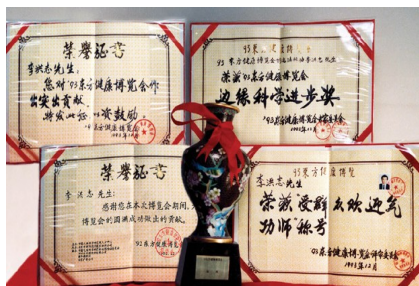 荣誉证书
李洪志先生：
您对'93东方健康博览会作
出突出贡献，
特发此证以资鼓励。
'93东方健康博览会
1993年12月
'93东方健康博览会
荣获'93东方健康博览会
边缘科学进步奖
'93东方健康博览会评审委员会
1993年12月
荣誉证书
李洪志先生：
感谢您在本次博览会期间，
博览会的圆满成功做出的贡献。
'93东方健康博览会
'93东方健康博览
李洪志先生
荣获受群众欢迎气
功师"称号
'93东方健康博览会评审委员会
1993年12月